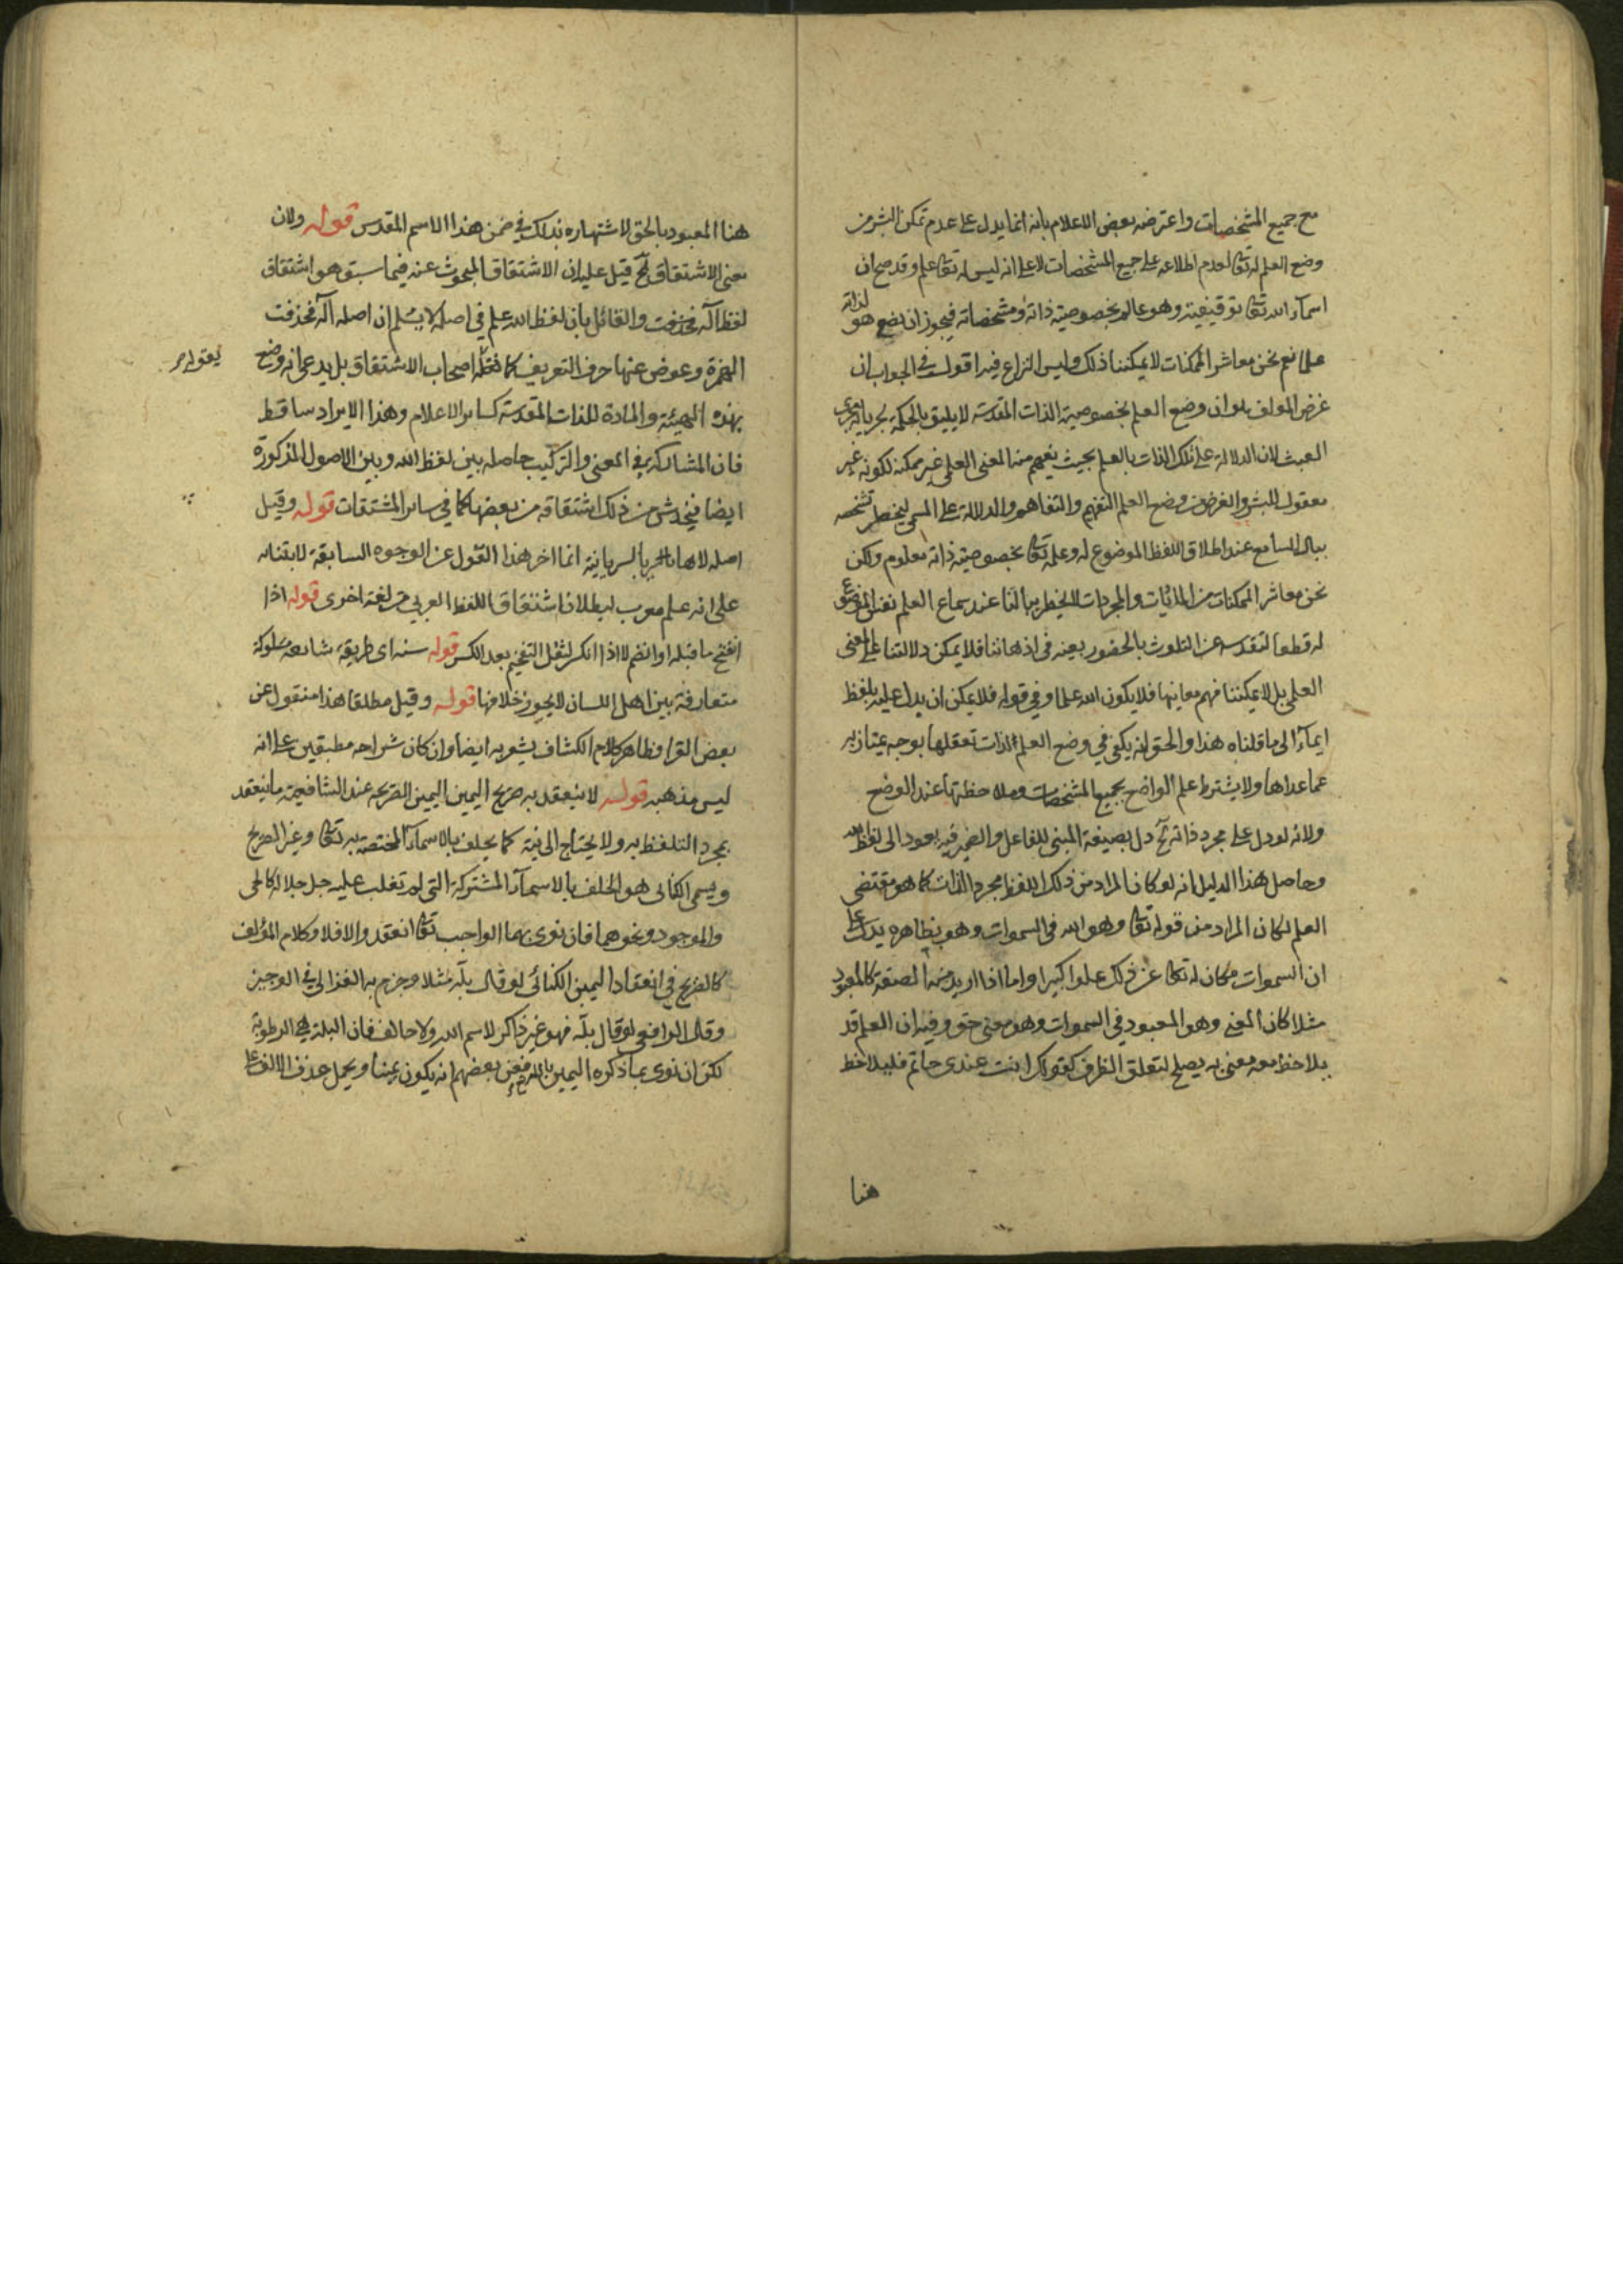 مع جميع المشخصات واعترضه بعض الاعلام بانه انما يدل على عدم تمكن البشر من
وضع العلم له تعا لعدم اطلاعه على جميع المشخصات لا على انه ليس له تعا علم وقد صح ان
اسمآء الله تعا توقيفية وهو عالم بخصوصية ذاته ومشخصاته فيجوز ان يضع هو لذاته
علما نعم نحن معاشر الممكنات لا يمكننا ذلك وليس النزاع فيه اقول في الجواب ان
غرض المولف هو ان وضع العلم بخصوصية الذات المقدسة لا يليق بالحكمة لجريانه مجرى
العبث لان الدلالة على تلك الذات بالعلم بحيث يفهم منه المعنى العلمي غير ممكنة لكونه غير
معقول للبشر والغرض من وضع العلم التفهيم والتفاهم والدلالة على المسمى ليخطر تشخصه
ببال السامع عند اطلاق اللفظ الموضوع له وعلمه تعا بخصوصية ذاته معلوم ولكن
نحن معاشر الممكنات من الماديات والمجردات لا يخطر ببالنا عند سماع العلم نفس الموضوع
له قطعا لتقدسه عن التلوث بالحضور بعينه في اذهاننا فلا يمكن دلالتنا على المعنى
العلمي بل لا يمكننا فهم معانيها فلا يكون الله علما وفي قوله فلا يمكن ان يدل عليه بلفظ
ايمآء الى ما قلناه هذا والحق انه يكفي في وضع العلم للذات تعقلها بوجه يمتاز به
عما عداها ولا يشترط علم الواضع بجميع المشخصات وملاحظتها عند الوضع
ولانه لو دل على مجرد ذاته آخ دل بصيغة المبني للفاعل والضمير فيه يعود الى لفظ الله
وحاصل هذا الدليل انه لو كان المراد من ذلك اللفظ مجرد الذات كما هو مقتضى
العلم لكان المراد من قوله تعا وهو الله في السموات وهو بظاهره يدل على
ان السموات مكان له تعا عن ذلك علوا كبيرا واما اذا اريد منه الصفة كالمعبود
مثلا كان المعنى وهو المعبود في السموات وهو معنى حق وفيه ان العلم قد
يلاحظ معه معنى به يصلح لتعلق الظرف كقولك انت عندي حاتم فليلاحظ
هنا
هنا المعبود بالحق لاشتهاره بذلك في ضمن هذا الاسم المقدس قوله ولان
معنى الاشتقاق آخ قيل عليه ان الاشتقاق المبحوث عنه فيما سبق هو اشتقاق
لفظ اله فحذفت والقائل بان لفظ الله علم في اصله لا يسلم ان اصله اله فحذفت
الهمزة وعوض عنها حرف التعريف كما نقله اصحاب الاشتقاق بل يدعي انه وضع
بهذه الهيئة والمادة للذات المقدسة كساير الاعلام وهذا الايراد ساقط
فان المشاركة في المعنى والتركيب حاصله بين لفظ الله وبين الاصول المذكورة
ايضا فيخدش من ذلك اشتقاقه من بعضها كما في ساير المشتقات قوله وقيل
اصله لاها بالسريانية انما اخر هذا القول عن الوجوه السابقة لابتنائه
على انه علم معرب لبطلان اشتقاق اللفظ العربي من لغة اخرى قوله اذا
انفتح ما قبله او انضم لا اذا انكسر لثقل التفخيم بعد الكسر قوله سنة اي طريقة شائعة مسلوكة
متعارفة بين اهل اللسان لا يجوز خلافها قوله وقيل مطلقا هذا منقول عن
بعض القرا وظاهر كلام الكشاف يشعر به ايضا وان كان شراحه مطبقين على انه
ليس مذهبه قوله لا ينعقد به صريح اليمين اليمين الصريحة عند الشافعية ما ينعقد
بمجرد التلفظ به ولا يحتاج الى نية كما يحلف بالاسمآء المختصة به تعا وغير الصريح
ويسمى الكنائي هو الحلف بالاسمآء المشتركة التي لم تغلب عليه جل جلاله كالحي
والموجود ونحوهما فان نوى بهما الواجب تعا انعقد والا فلا وكلام المؤلف
كالصريح في انعقاد اليمين الكنائي لو قال بله مثلا وجزم به الغزالي في الوجيز
وقال الرافعي لو قال بله فهو غير ذاكر لاسم الله ولا حالف فان البلة هي الرطوبة
لكن ان نوى بما ذكره اليمين بالله فعن بعضهم انه يكون يمينا ويحمل حذف الالف على